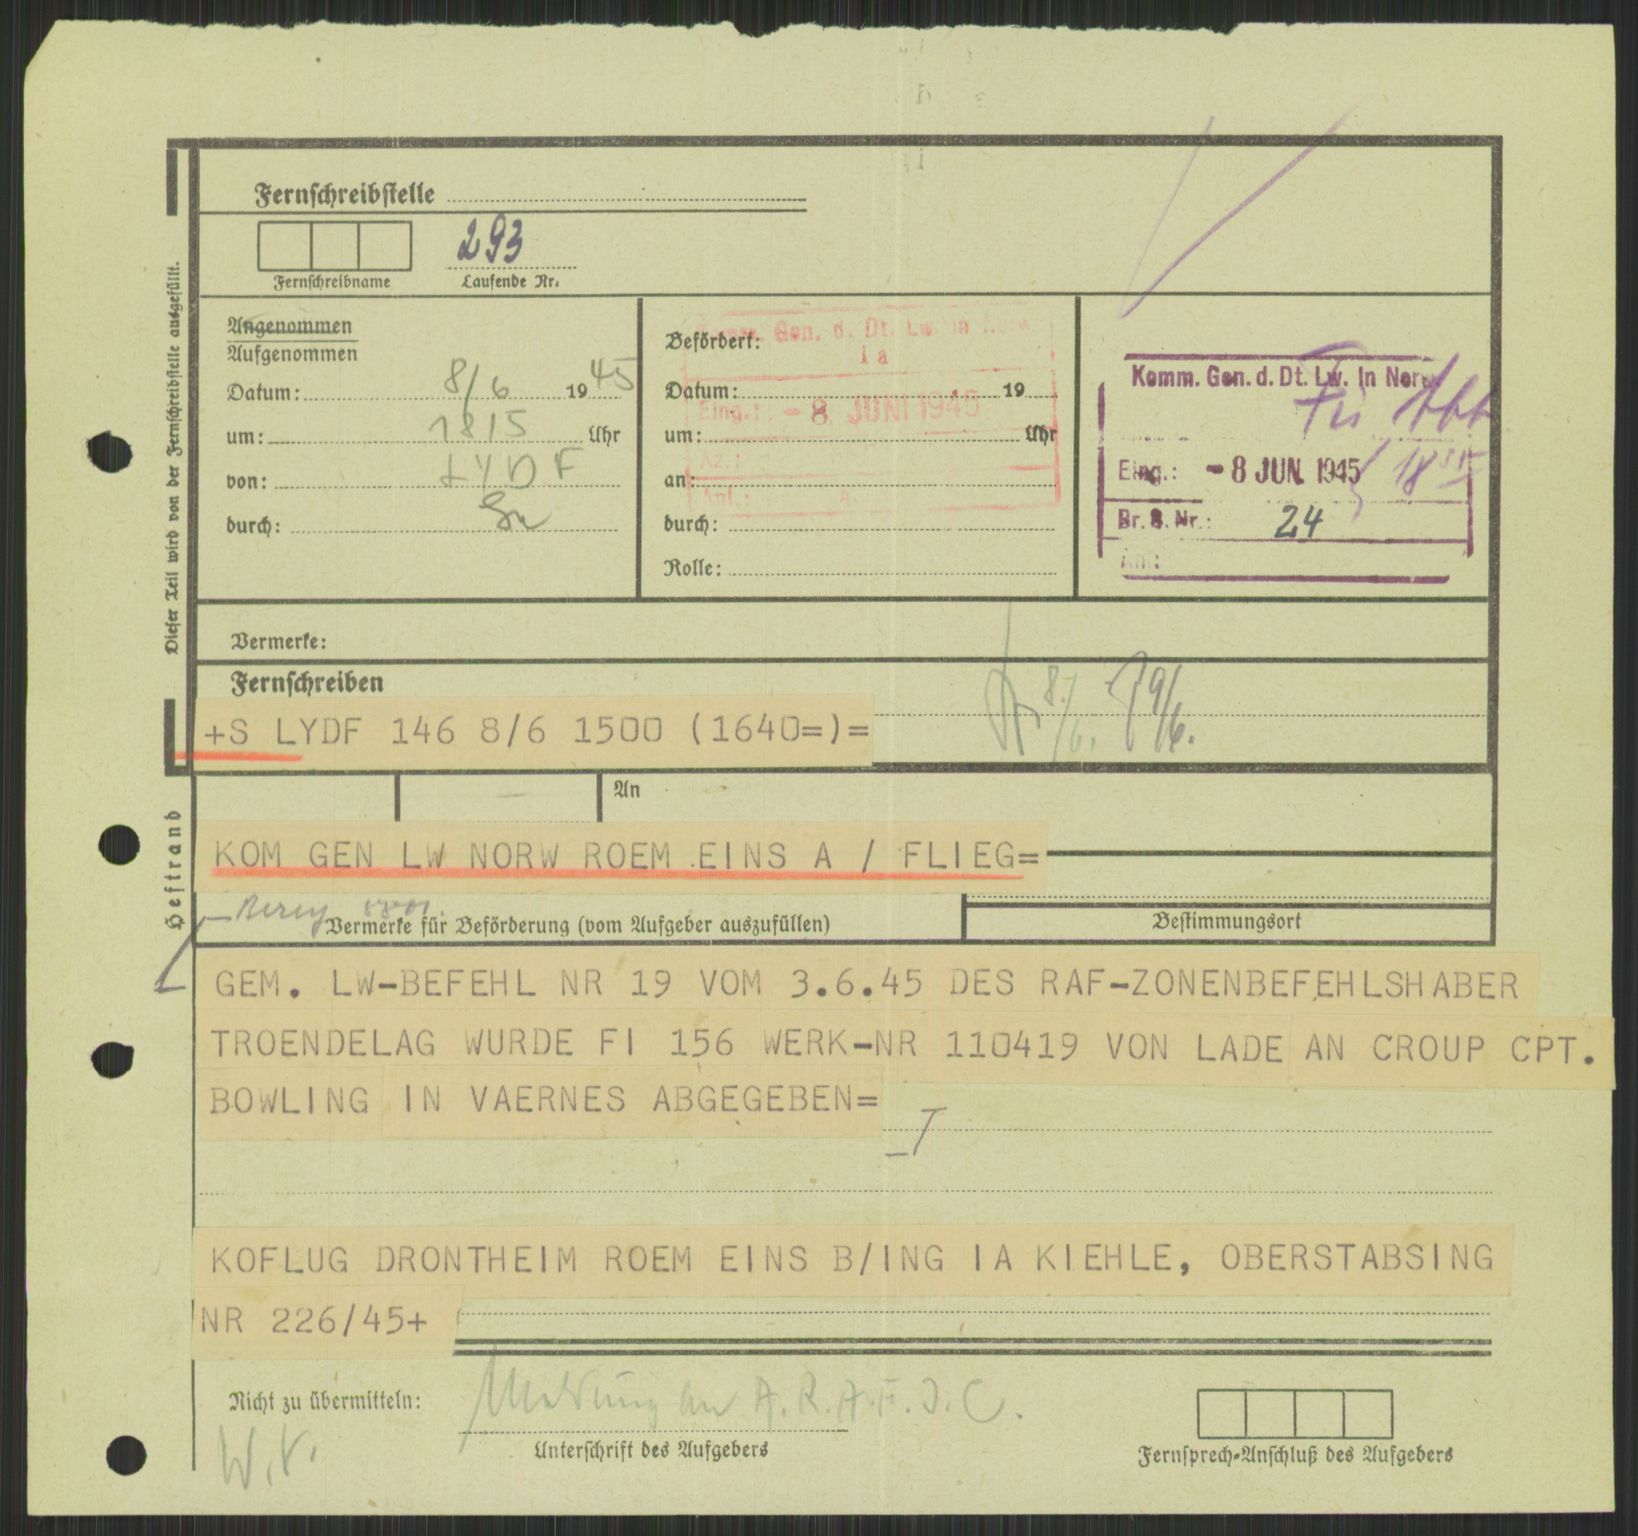 Fernschreibstelle
293
Fernschreibname
Laufende Nr.
Dieser Teil wird von der Fernschreibstelle ausgefüllt.
Angenommen
Aufgenommen
Datum: 8/6 1945
um: 1815 Uhr
von: LYDF
durch:
Befördert:
Datum: 19
um: Uhr
an:
durch:
Rolle:
Gen. d. Dt. Lw. in
Ia
Eing.: - 8 JUNI 1945
Az.:
Anl.:
Komm. Gen. d. Dt. Lw. in Norw
Eing.: - 8 JUN. 1945
Br. B. Nr.: 24
Vermerke:
Fernschreiben
+S LYDF 146 8/6 1500 (1640=)=
8./6. 9/6.
An
KOM GEN LW NORW ROEM EINS A / FLIEG=
Heftrand
Vermerke für Beförderung (vom Aufgeber auszufüllen)
Bestimmungsort
GEM. LW-BEFEHL NR 19 VOM 3.6.45 DES RAF-ZONENBEFEHLSHABER
TROENDELAG WURDE FI 156 WERK-NR 110419 VON LADE AN CROUP CPT.
BOWLING IN VAERNES ABGEGEBEN=
KOFLUG DRONTHEIM ROEM EINS B/ING IA KIEHLE, OBERSTABSING
NR 226/45+
Nicht zu übermitteln:
Meldung an A.R.A.F.D.C.
W.V.
Unterschrift des Aufgebers
Fernsprech-Anschluß des Aufgebers